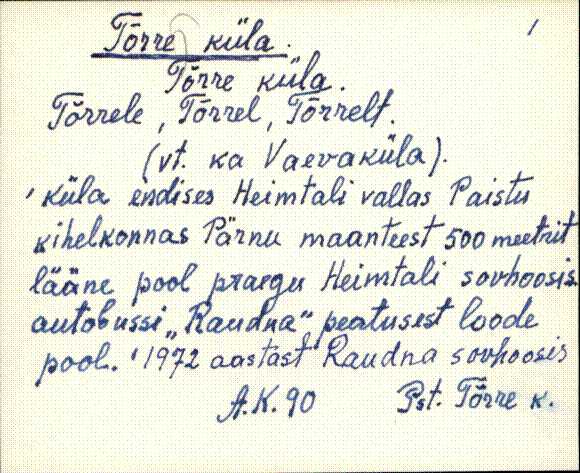 Tõrre küla. 1
Tõrre küla.
Tõrrele, Tõrrel, Tõrrelt.
(vt. ka Vaevaküla).
'küla endises Heimtali vallas Paistu
kihelkonnas Pärnu maanteest 500 meetrit
lääne pool praegu Heimtali sovhoosis.
autobussi „Raudna" peatusest loode
pool.' 1972 aastast Raudna sovhoosis
A.K. 90 Pst. Tõrre k.